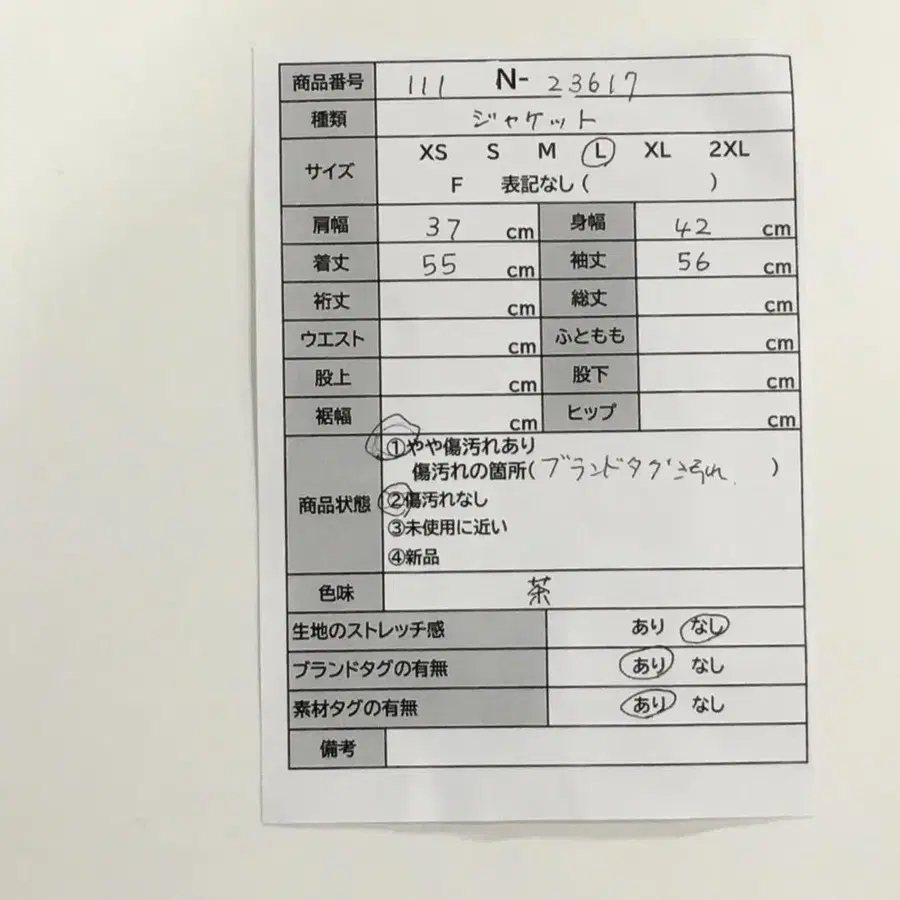 商品番号 111 N- 23617
種類 ジャケット
サイズ XS S M L XL 2XL
F 表記なし ( )
肩幅 37 cm 身幅 42 cm
着丈 55 cm 袖丈 56 cm
裄丈 cm 総丈 cm
ウエスト cm ふともも cm
股上 cm 股下 cm
裾幅 cm ヒップ cm
商品状態 ①やや傷汚れあり
傷汚れの箇所(ブランドタグ汚れ )
②傷汚れなし
③未使用に近い
④新品
色味 茶
生地のストレッチ感 あり なし
ブランドタグの有無 あり なし
素材タグの有無 あり なし
備考